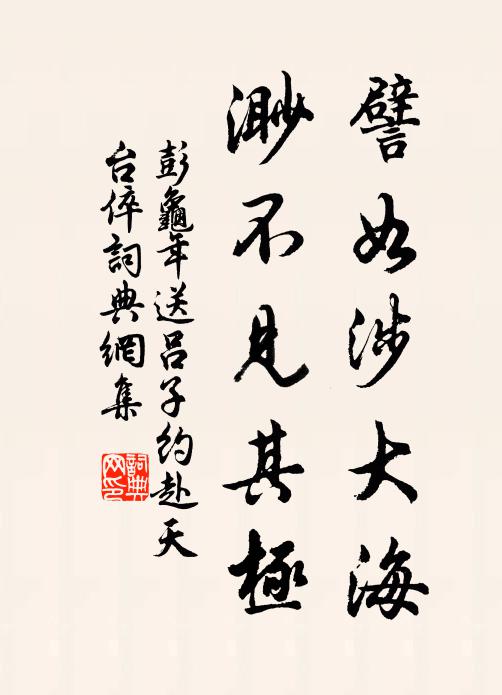 譬如涉大海
渺不見其極
彭龜年送呂子約赴天
台倅詞典網集
詞典
网印